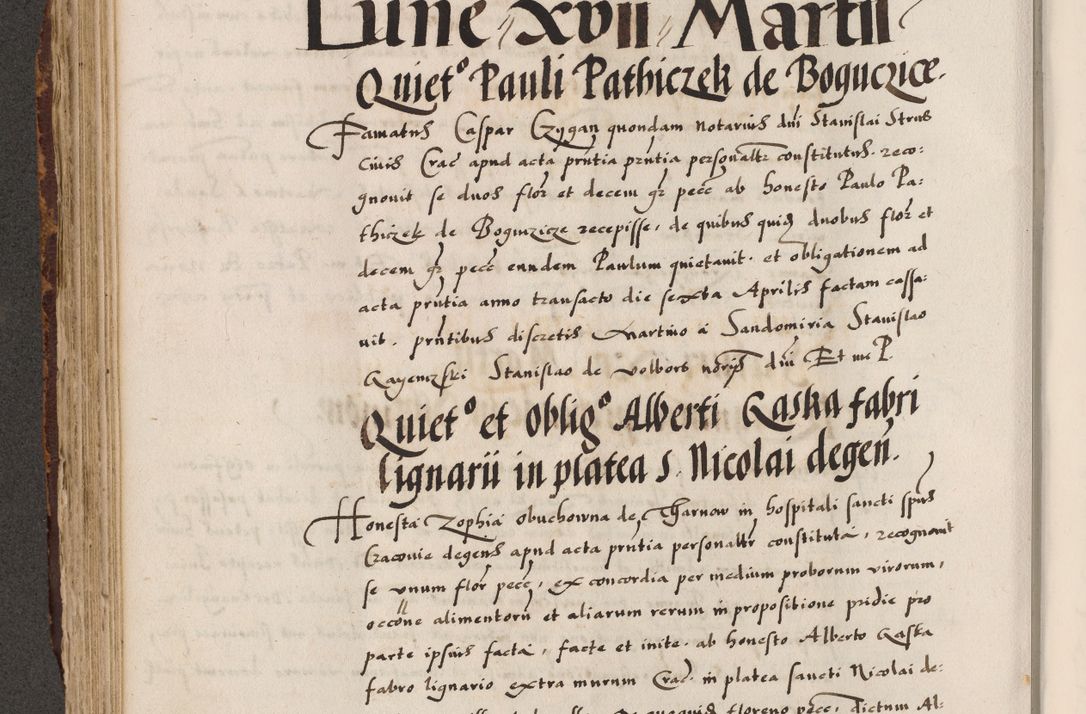 Lune xvii Martii
Quiet° Pauli Pathiczek de Boguczice.
Famatus Caspar Czygan quondam notarius dni Stanislai Strus
civis Crac apud acta prntia prntia personaltr constitutus. reco:
gnovit se duos flor et decem gr pecc ab honesto Paulo Pa:
thiczek de Boguczicze recepisse, de quibus quid duobus flor et
decem gr pecc eundem Paulum quietavit. et obligationem ad
acta prntia anno transacto die sexta Aprilis factam cassa:
vit. prntibus discretis Martino a Sandomiria Stanislao
Stanislao de Volbors norijs dni Et me P.
Quiet° et oblig° Alberti Gaska fabri
lignarii in platea S. Nicolai degen.
Honesta Zophia Obuchowna de Tharnow in hospitali sancti spus
Cracovie degens apud acta prntia personaltr constituta, recognovit
se unum flor pecc, ex concordia per medium proborum virorum,
occone alimentoru et aliarum rerum in propositione pridie pro
parte ipsius facta, facte et inite. ab honesto Alberto Gaska
fabro lignario extra murum Crac. in platea sancti Nicolai de:
floreno pecc, dictum Al: